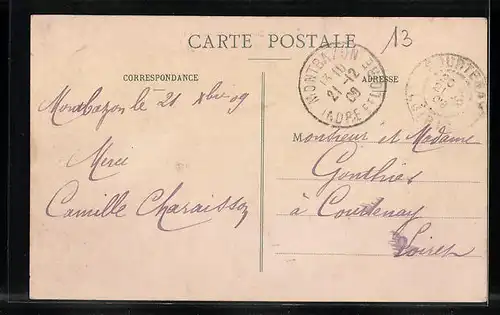 CARTE POSTALE
13
CORRESPONDANCE
ADRESSE
MONTBAZON
21-12
09
INDRE ET LOIRE
COURTENAY
Montbazon le 21 Xbre 09
Merci
Camille Charaisson
Monsieur et Madame
Gonthier
à Courtenay
Loiret